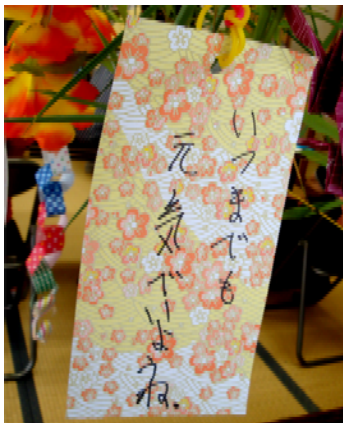 いつまでも
元気でいようね、